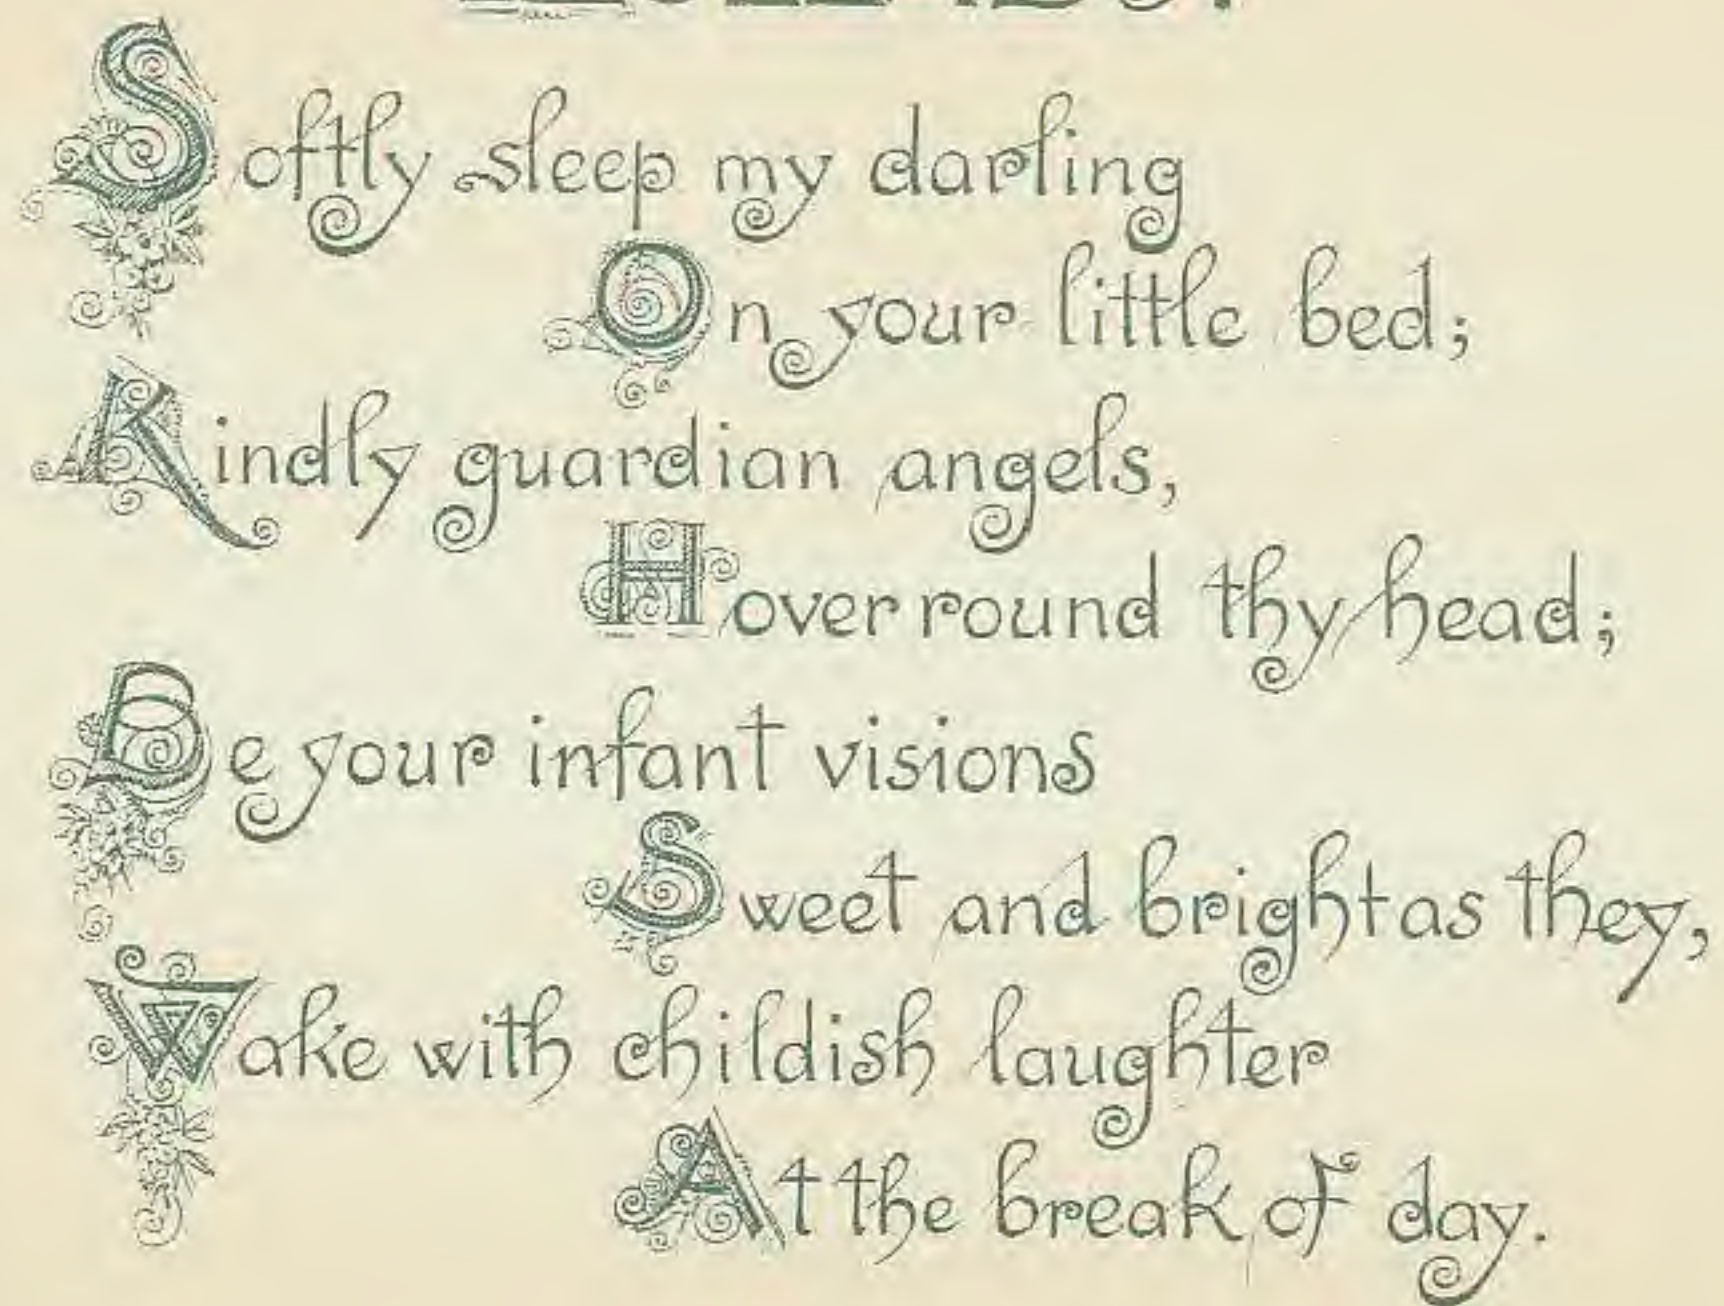 Softly sleep my darling
On your little bed;
Kindly guardian angels,
Hover round thy head;
Be your infant visions
Sweet and bright as they,
Wake with childish laughter
At the break of day.